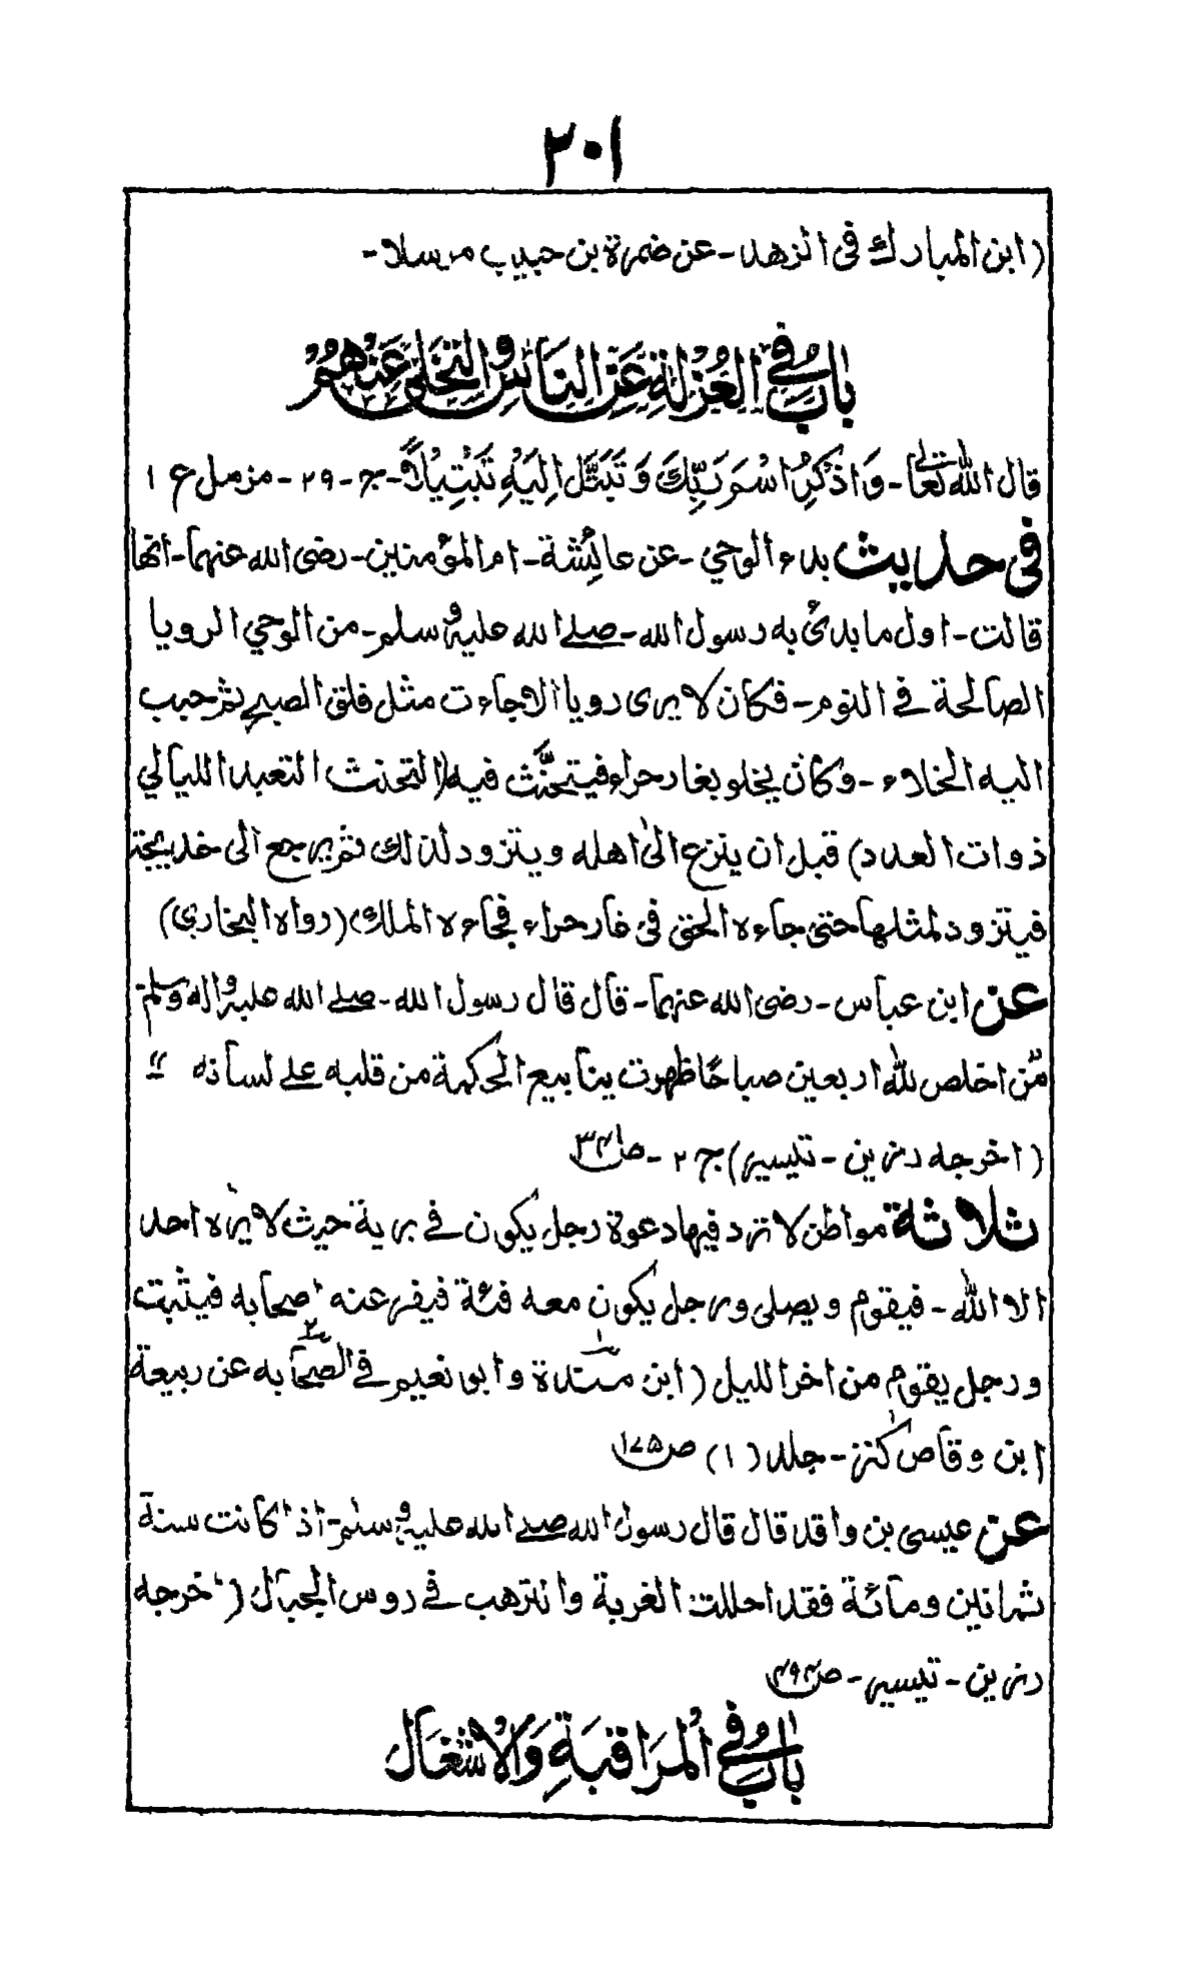 ٣٠١
(ابن المبارك فى الزهد - عن ضمرة بن حبيب مرسلا -
بَابٌ فِي الْعُزْلَةِ عَنِ النَّاسِ وَالتَّخَلِّي عَنْهُمْ
قال الله تعالى - وَاذْكُرِ اسْمَ رَبِّكَ وَتَبَتَّلْ اِلَيْهِ تَبْتِيْلًا - ج - ٢٩ - مزمل ع ١
فى حديث بدء الوحي - عن عائشة - ام المؤمنين - رضى الله عنها - انها
قالت - اول ما بدئ به رسول الله - صلے الله عليه و سلم - من الوحي الرويا
الصالحة فے النوم - فكان لا يرى رويا الا جاءت مثل فلق الصبح ثم حبب
اليه الخلاء - وكان يخلو بغار حراء فيتحنَّث فيه (التحنث التعبد الليالي
ذوات العدد) قبل ان ينزع الىٰ اهله ويتزود لذلك ثم يرجع الى خديجة
فيتزود لمثلها حتى جاءه الحق فى غار حراء فجاءه الملك (رواه البخارى)
عن ابن عباس - رضى الله عنهما - قال قال رسول الله - صلے الله عليه واله وسلم -
من اخلص لله اربعين صباحًا ظهرت ينابيع الحكمة من قلبه علے لسانه
(اخرجه رزين - تيسير) ج ٢ - ص
ثلاثة مواطن لا ترد فيها دعوة رجل يكون فے برية حيث لا يراه احد
الا الله - فيقوم ويصلى ورجل يكون معه فئة فيفر عنه اصحابه فيثبت
ورجل يقوم من اخر الليل (ابن مندة وابو نعيم فے الصحابه عن ربيعة
ابن وقاص كنز - جلد (١) ص ١٧٥
عن عيسى بن واقد قال قال رسول الله صلے الله عليه و سلم - اذا كانت سنة
ثمانين ومائة فقد احللت الغربة والترهب فے روس الجبال (اخرجه
رزين - تيسير - ص
بَابٌ فِي الْمُرَاقَبَةِ وَالْاشْغَالِ